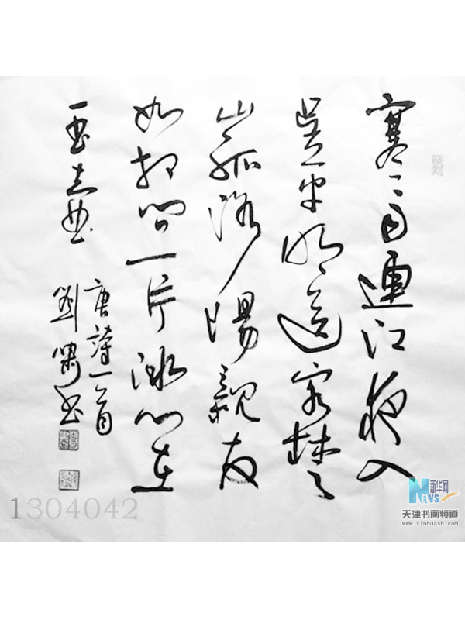 寒雨連江夜入
吳平明送客楚
山孤洛陽親友
如相問一片冰心在
玉壺
唐詩一首
劉 書
1304042
NEWS 新华网
天津书画频道